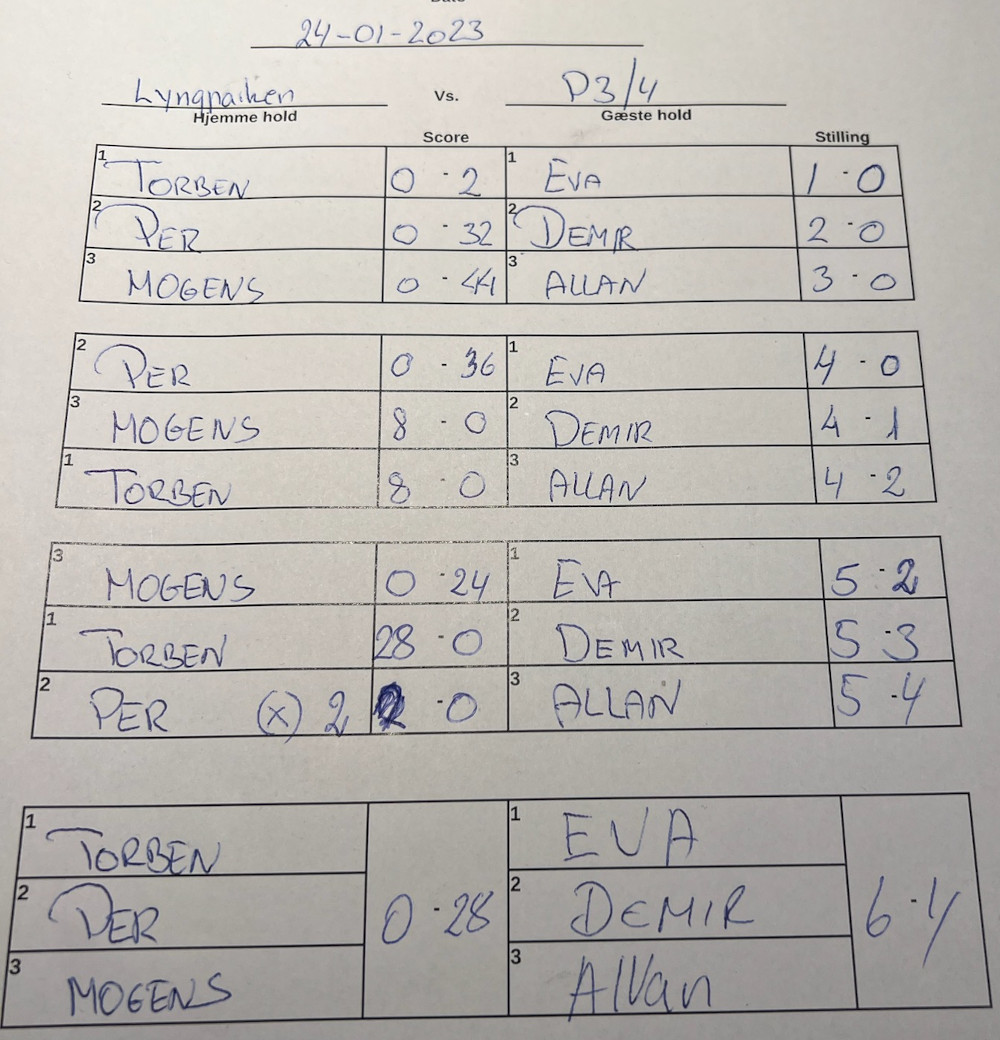 24-01-2023
Lyngparken Vs. P3/4
Hjemme hold Gæste hold
Score Stilling
1 TORBEN 0 - 2 1 EVA 1 - 0
2 PER 0 - 32 2 DEMIR 2 - 0
3 MOGENS 0 - 44 3 ALLAN 3 - 0
2 PER 0 - 36 1 EVA 4 - 0
3 MOGENS 8 - 0 2 DEMIR 4 - 1
1 TORBEN 8 - 0 3 ALLAN 4 - 2
3 MOGENS 0 - 24 1 EVA 5 - 2
1 TORBEN 28 - 0 2 DEMIR 5 - 3
2 PER (x) 2 - 0 3 ALLAN 5 - 4
1 TORBEN 1 EVA
2 PER 0 - 28 2 DEMIR 6 - 4
3 MOGENS 3 Allan